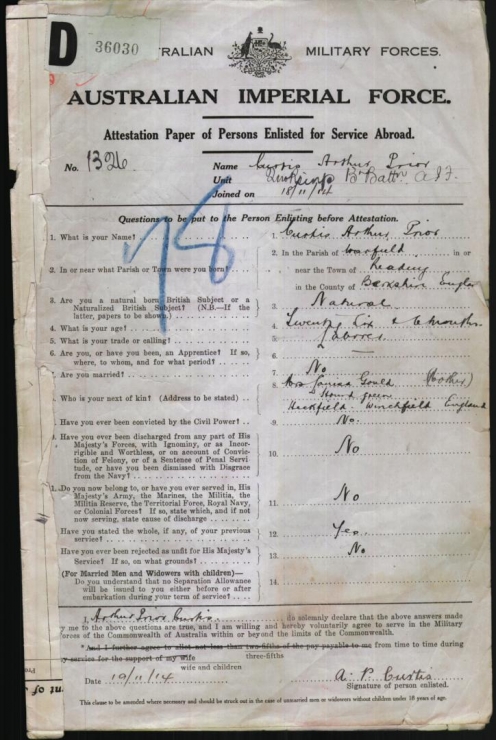 D 36030
TRALIAN MILITARY FORCES.
AUSTRALIAN IMPERIAL FORCE.
Attestation Paper of Persons Enlisted for Service Abroad.
No. 1326 Name Curtis Arthur Prior
Unit B Battn A.I.F.
Joined on 18/11/14
78
Questions to be put to the Person Enlisting before Attestation.
1. What is your Name? 1. Curtis Arthur Prior
2. In or near what Parish or Town were you born? 2. In the Parish of Warfield in or
near the Town of Reading
in the County of Berkshire Englan
3. Are you a natural born British Subject or a
Naturalized British Subject? (N.B.—If the
latter, papers to be shown.) 3. Natural
4. What is your age? 4. Twenty Six & 6 months
5. What is your trade or calling? 5. Labourer
6. Are you, or have you been, an Apprentice? If so,
where, to whom, and for what period? 6. —
7. Are you married? 7. No
Who is your next of kin? (Address to be stated) 8. Mrs Louisa Gould (Mother)
Hound green
Heckfield. Winchfield England
Have you ever been convicted by the Civil Power? 9. No.
Have you ever been discharged from any part of His
Majesty's Forces, with Ignominy, or as Incor-
rigible and Worthless, or on account of Convic-
tion of Felony, or of a Sentence of Penal Servi-
tude, or have you been dismissed with Disgrace
from the Navy? 10. No
Do you now belong to, or have you ever served in, His
Majesty's Army, the Marines, the Militia, the
Militia Reserve, the Territorial Force, Royal Navy,
or Colonial Forces? If so, state which, and if not
now serving, state cause of discharge 11. No
Have you stated the whole, if any, of your previous
service? 12. Yes
Have you ever been rejected as unfit for His Majesty's
Service? If so, on what grounds? 13. No
(For Married Men and Widowers with children)—
Do you understand that no Separation Allowance
will be issued to you either before or after
embarkation during your term of service? 14.
I, Arthur Prior Curtis do solemnly declare that the above answers made
by me to the above questions are true, and I am willing and hereby voluntarily agree to serve in the Military
Forces of the Commonwealth of Australia within or beyond the limits of the Commonwealth.
*And I further agree to allot not less than two-fifths of the pay payable to me from time to time during
three-fifths
my service for the support of my wife
wife and children
Date 19/11/14 A. P. Curtis
Signature of person enlisted.
This clause to be amended where necessary and should be struck out in the case of unmarried men or widowers without children under 18 years of age.